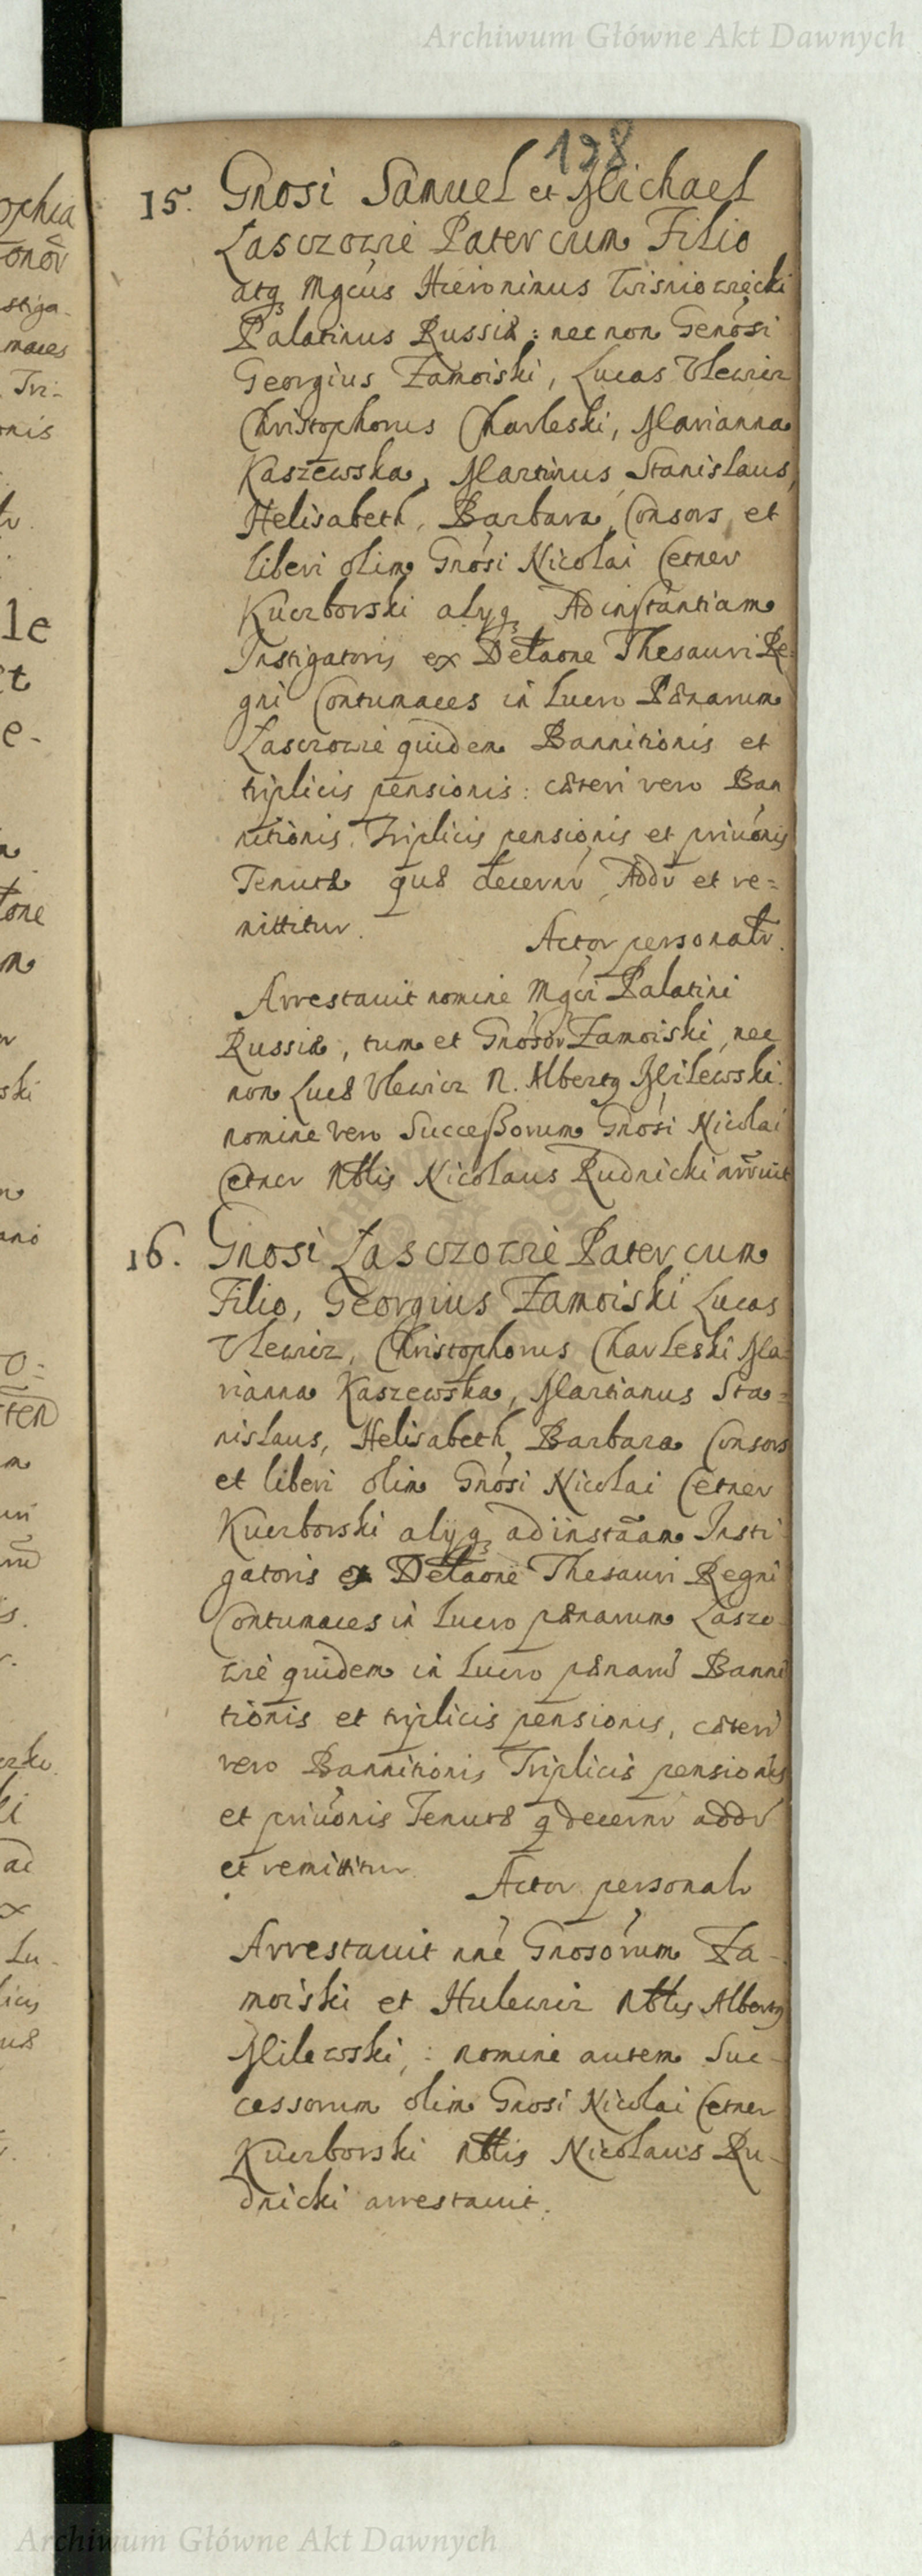 Archiwum Główne Akt Dawnych
138
15. Gnosi Samuel et Michael
Lasczowie Pater cum Filio
atq Mgcus Hieronimus Wisniowiecki
Palatinus Russiæ: nec non Genosi
Georgius Zamoiski, Lucas Ulewicz
Christophorus Charleski, Marianna
Kaszewska, Martinus Stanislaus,
Helisabeth, Barbara, Consors et
liberi olim Gnosi Nicolai Cetner
Kuczborski alyq Ad instantiam
Instigatoris ex Delaone Thesauri Re=
gni Contumaces in lucro Pænarum
Lasczowie quidem Bannitionis et
triplicis pensionis: cæteri vero Ban
nitionis, Triplicis pensionis et priuonis
Tenutæ quæ decernr Addr et re=
mittitur.
Actor personalr.
Arrestauit nomine Mgci Palatini
Russiæ, tum et Gnosor Zamoiski, nec
non Lucæ Ulewicz N. Albertq Milewski.
nomine vero Successorum Gnosi Nicolai
Cetner Nblis Nicolaus Rudnicki arruit
16. Gnosi Lasczowie Pater cum
Filio, Georgius Zamoiski Lucas
Ulewicz, Christophorus Charleski Ma=
rianna Kaszewska, Martianus Sta=
nislaus, Helisabeth Barbara Consors
et liberi olim Gnosi Nicolai Cetner
Kuczborski alyq ad instãam Insti
gatoris ex Delaone Thesauri Regni
Contumaces in lucro pænarum Laszo
wie quidem in lucro pænarũ Banni
tionis et triplicis pensionis, cæteri
vero Bannitionis Triplicis pensionis
et priuonis Tenutæ q decernr addr
et remittitur
Actor personalr
Arrestauit nne Gnosorum Za-
moiski et Hulewicz Nblis Albertq
Milewski,: nomine autem Suc-
cessorum olim Gnosi Nicolai Cetner
Kuczborski Nblis Nicolaus Ru-
dnicki arrestauit.
Archiwum Główne Akt Dawnych